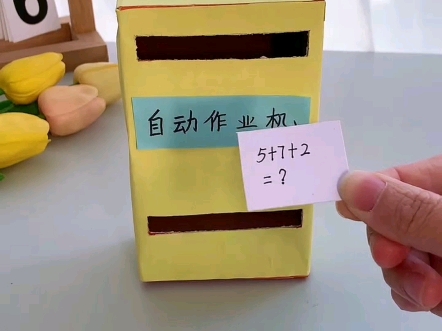 6
自动作业机
5+7+2
=?